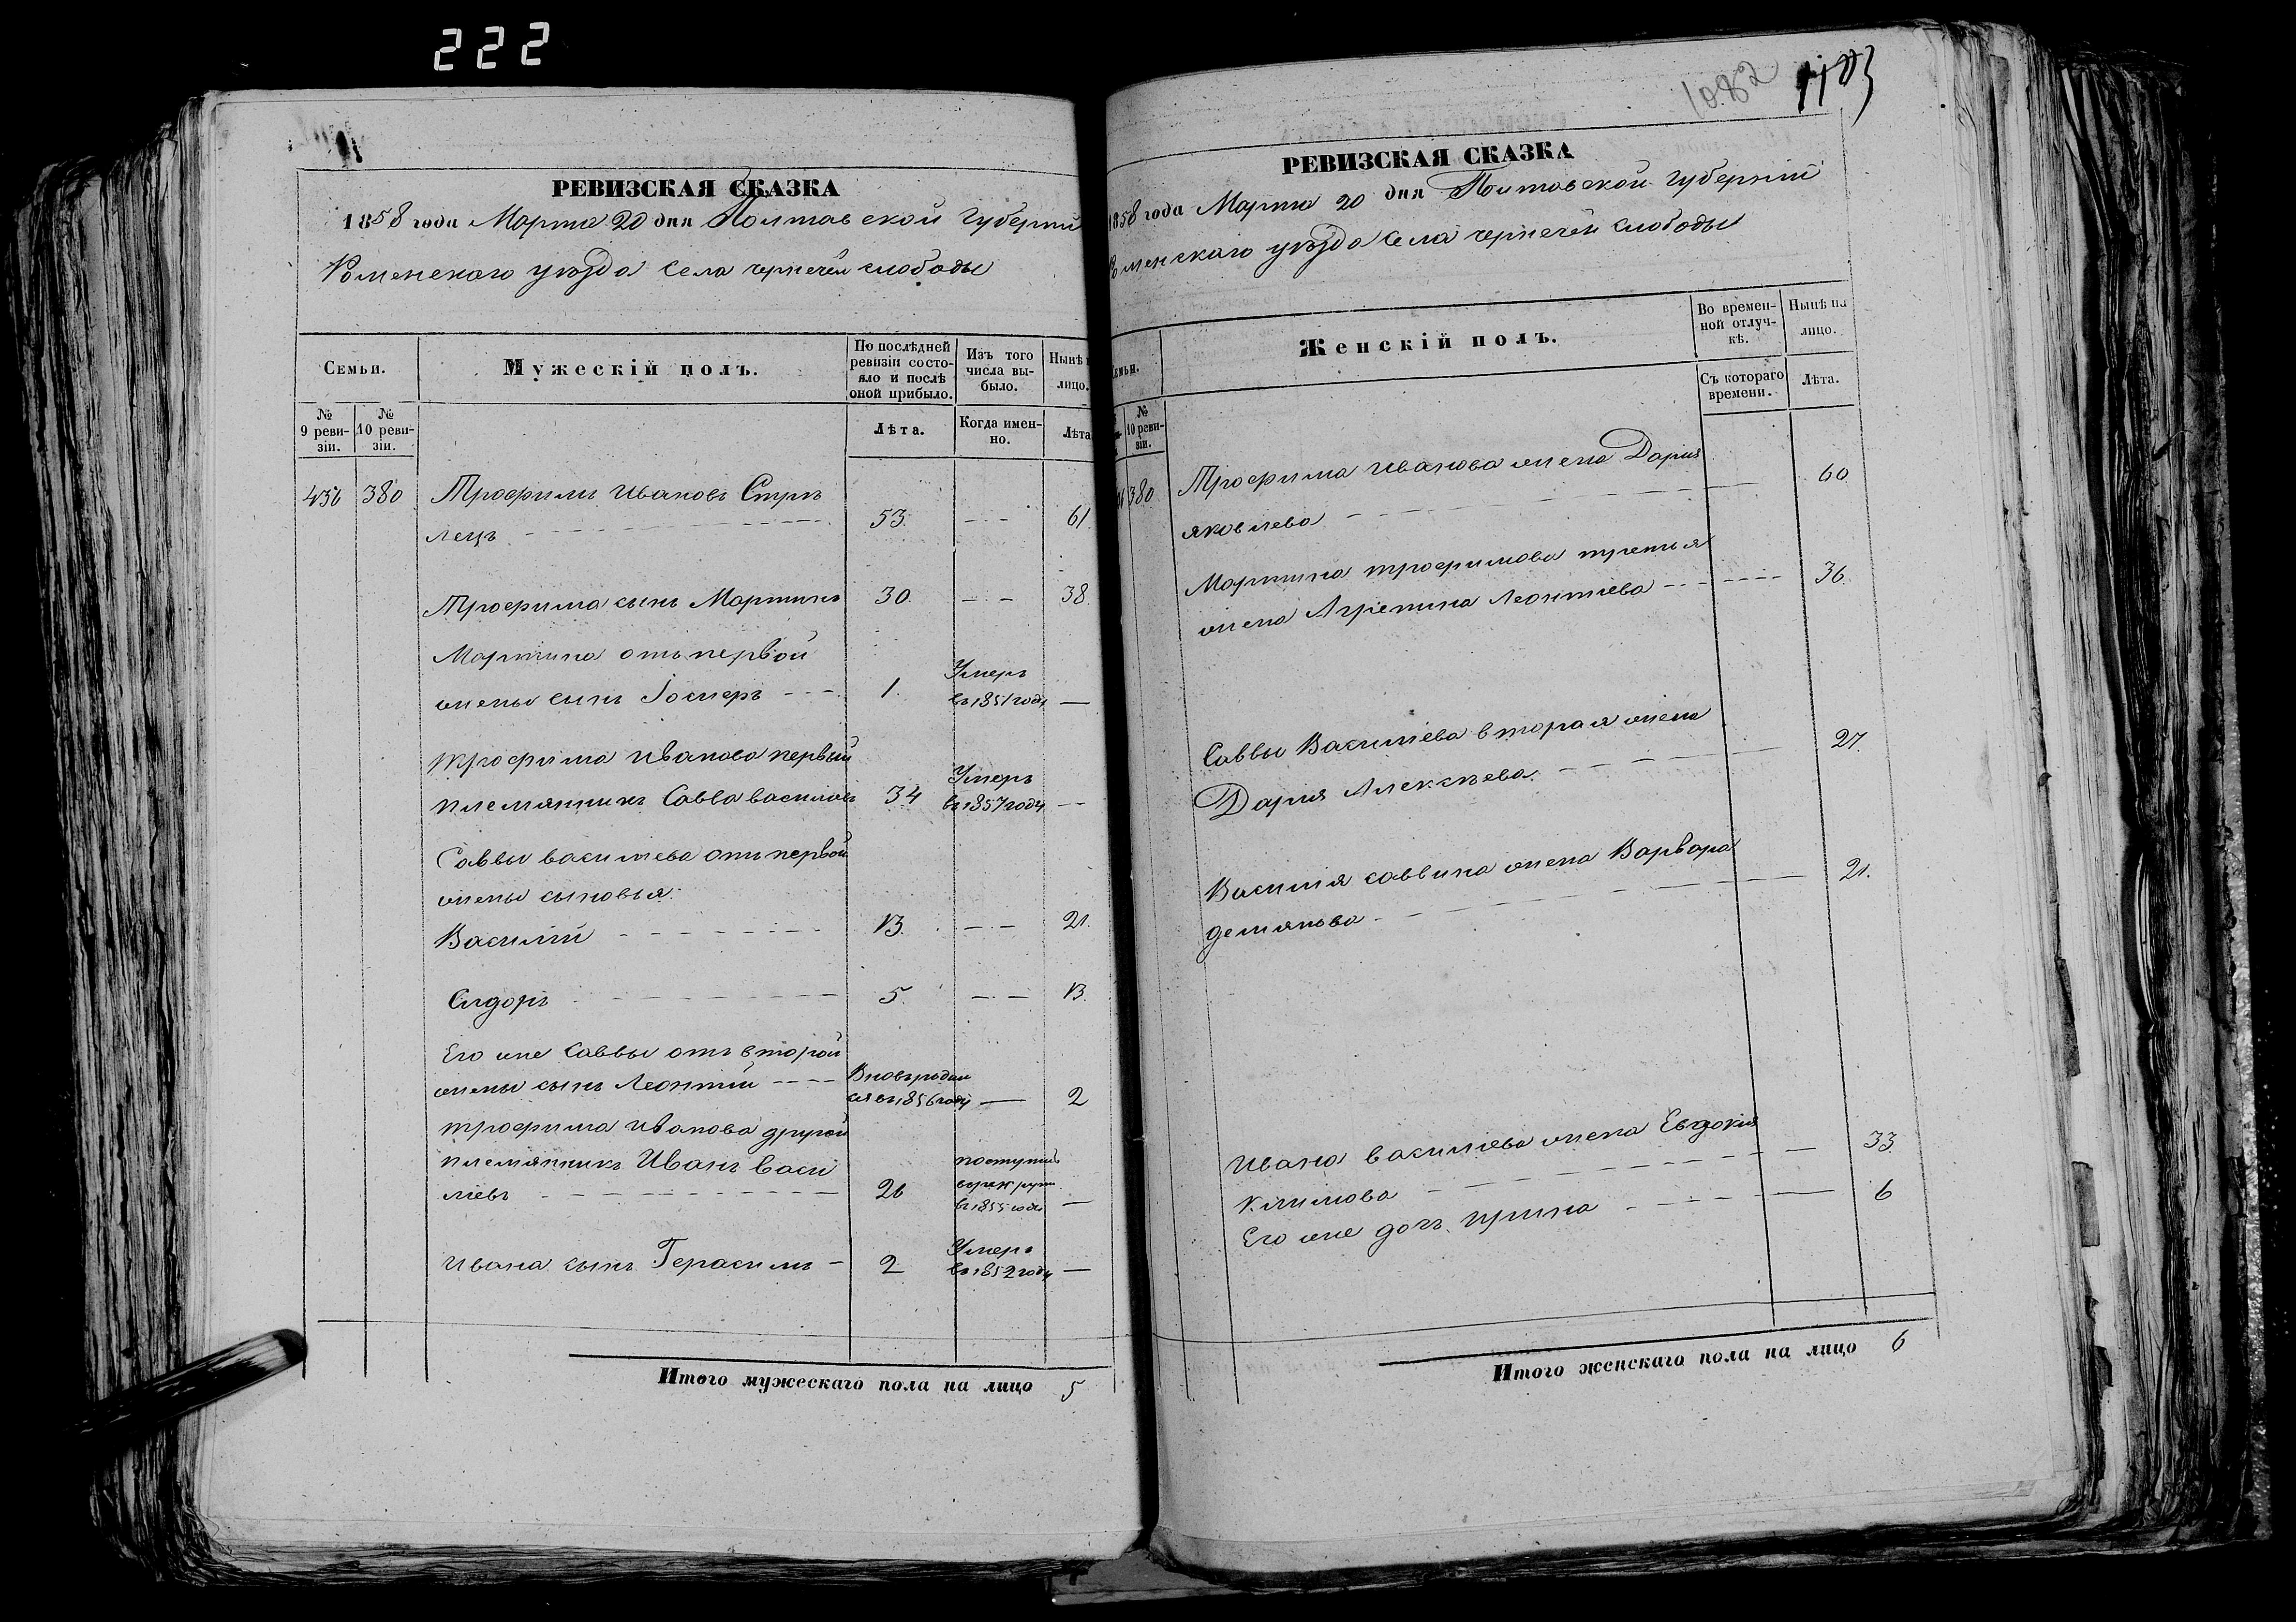 222
РЕВИЗСКАЯ СКАЗКА
1858 года Марта 20 дня Полтавской Губерніи
Роменскаго уѣзда села чернечей слободы
Семьи.
Мужескій полъ.
По послѣдней ревизіи состояло и послѣ оной прибыло.
Изъ того числа выбыло.
Нынѣ
лицо.
№ 9 ревизіи.
№ 10 ревизіи.
Лѣта.
Когда именно.
Лѣта
456 380 Трофимъ Ивановъ Стрѣ
лецъ 53. 61.
Трофима сынъ Мартинъ 30. 38.
Мартина отъ первой
жены сынъ 1. Умеръ въ 1851 году
трофима Иванова первый
племянникъ Савва василіевъ 34 Умеръ въ 1857 году
Саввы василіева отъ первой
жены сыновья:
Василій 13. 21.
Сидоръ 5. 13.
Его же Саввы отъ второй
жены сынъ Леонтій Вновьродился въ 1856 году 2
трофима Иванова другой
племянникъ Иванъ васи
ліевъ 26 поступилъ въ рекруты въ 1855 году
Ивана сынъ Герасимъ 2 Умеръ въ 1852 году
Итого мужескаго пола на лицо 5
1082 1103
РЕВИЗСКАЯ СКАЗКА
1858 года Марта 20 дня Полтавской губерніи
Роменскаго уѣзда села чернечей слободы
Женскій полъ.
Во временной отлучкѣ.
Нынѣ на лицо.
№ 10 ревизіи.
Съ котораго времени.
Лѣта.
380 Трофима Иванова жена Дарія
яковлева 60
Мартина трофимова третья
жена Агрепина Леонтіева 36.
Саввы Василіева вторая жена
Дарія Алексѣева 27.
Василія саввина жена Варвара
демянова 21.
Ивана василіева жена Евдокія
климова 33
Его же дочь ирина 6
Итого женскаго пола на лицо 6